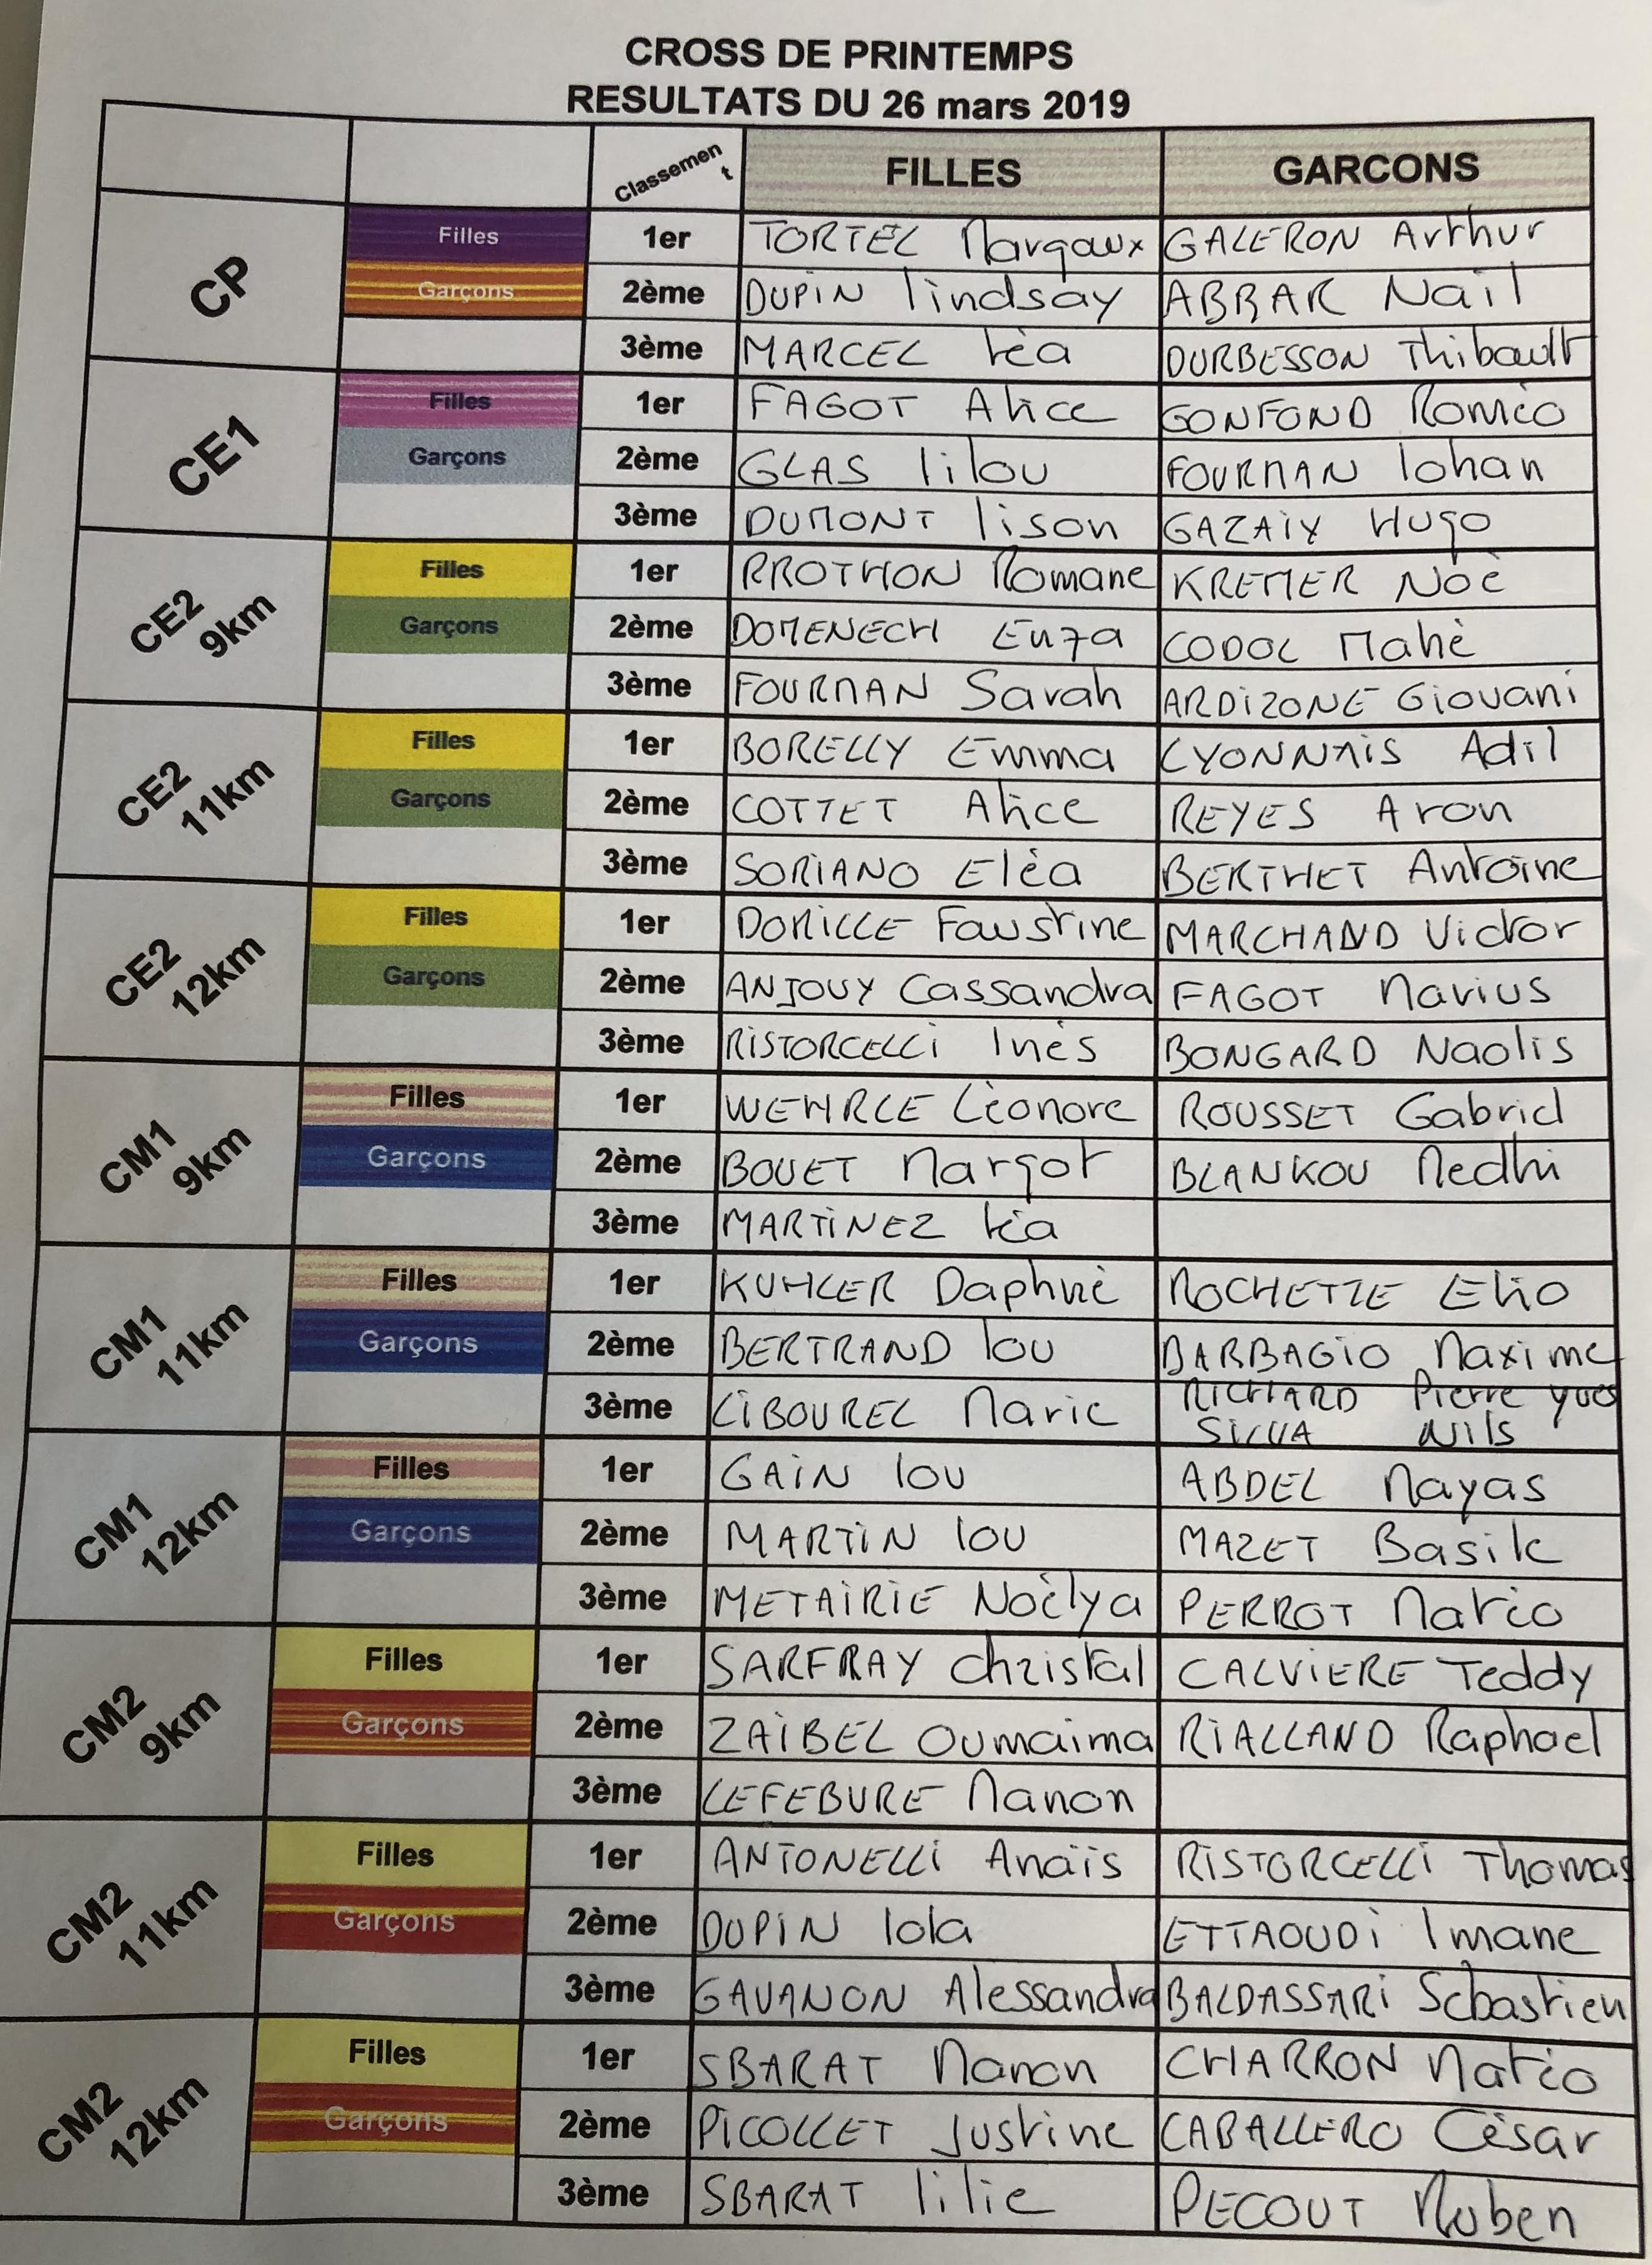 CROSS DE PRINTEMPS
RESULTATS DU 26 mars 2019
Classement FILLES GARCONS
CP
Filles 1er TORTEL Margaux GALERON Arthur
Garçons 2ème DUPIN lindsay ABBAR Naïl
3ème MARCEL Léa DURBESSON Thibault
CE1
Filles 1er FAGOT Alice GONFOND Roméo
Garçons 2ème GLAS lilou FOURMAN Iohan
3ème DUMONT lison GAZAIX Hugo
CE2 9km
Filles 1er PROTHON Romane KREMER Noé
Garçons 2ème DOMENECH Enza CODOL Mahé
3ème FOURMAN Sarah ARDIZONE Giovani
CE2 11km
Filles 1er BORELLY Emma LYONNAIS Adil
Garçons 2ème COTTET Alice REYES Aron
3ème SORIANO Eléa BERTHET Antoine
CE2 12km
Filles 1er DORILLE Faustine MARCHAND Victor
Garçons 2ème ANJOUY Cassandra FAGOT Marius
3ème RISTORCELLI Inés BONGARD Naolis
CM1 9km
Filles 1er WEHRLE Léonore ROUSSET Gabriel
Garçons 2ème BOUET Margot BLANKOU Medhi
3ème MARTINEZ Léa
CM1 11km
Filles 1er KUHLER Daphné ROCHETTE Elio
Garçons 2ème BERTRAND lou BARBAGIO Maxime
3ème LIBOUREL Marie RICHARD Pierre yves
SILVA Nils
CM1 12km
Filles 1er GAIN lou ABDEL Mayas
Garçons 2ème MARTIN lou MAZET Basile
3ème METAIRIE Noélya PERROT Matéo
CM2 9km
Filles 1er SARFRAY christal CALVIERE Teddy
Garçons 2ème ZAIBEL Oumaima RIALLAND Raphael
3ème LEFEBURE Manon
CM2 11km
Filles 1er ANTONELLI Anaïs RISTORCELLI Thomas
Garçons 2ème DUPIN lola ETTAOUDI Imane
3ème GAVANON Alessandra BALDASSARI Sebastien
CM2 12km
Filles 1er SBARAT Manon CHARRON Matéo
Garçons 2ème PICOLLET Justine CABALLERO César
3ème SBARAT lilie PECOUT Ruben